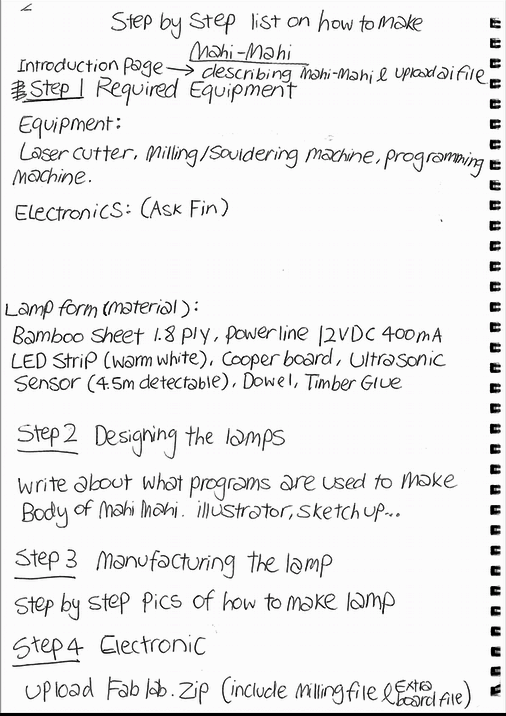 Step by Step list on how to make
Mahi-Mahi
Introduction page → describing Mahi-Mahi & upload ai file
Step 1 Required Equipment
Equipment:
Laser cutter, Milling/Souldering machine, programming
machine.
Electronics: (Ask Fin)
Lamp form (material):
Bamboo sheet 1.8 ply, powerline 12VDC 400mA
LED Strip (warm white), Cooper board, Ultrasonic
Sensor (4.5m detectable), Dowel, Timber Glue
Step 2 Designing the lamps
write about what programs are used to make
Body of Mahi Mahi. illustrator, sketch up...
Step 3 Manufacturing the lamp
Step by step pics of how to make lamp
Step 4 Electronic
upload Fab lab. Zip (include Milling file & Extra
board file)